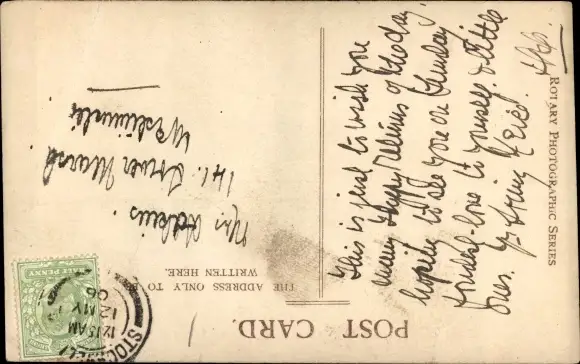 POST CARD.
THE ADDRESS ONLY TO BE
WRITTEN HERE.
ROTARY PHOTOGRAPHIC SERIES
This is just to wish you
many happy returns of the day
hoping to see you on Sunday
fondest love to yourself & little
ones.
Mrs Adkins.
141. Grover
Westminster
HALF PENNY
STOCKWELL
12.15 AM
12 MY
06